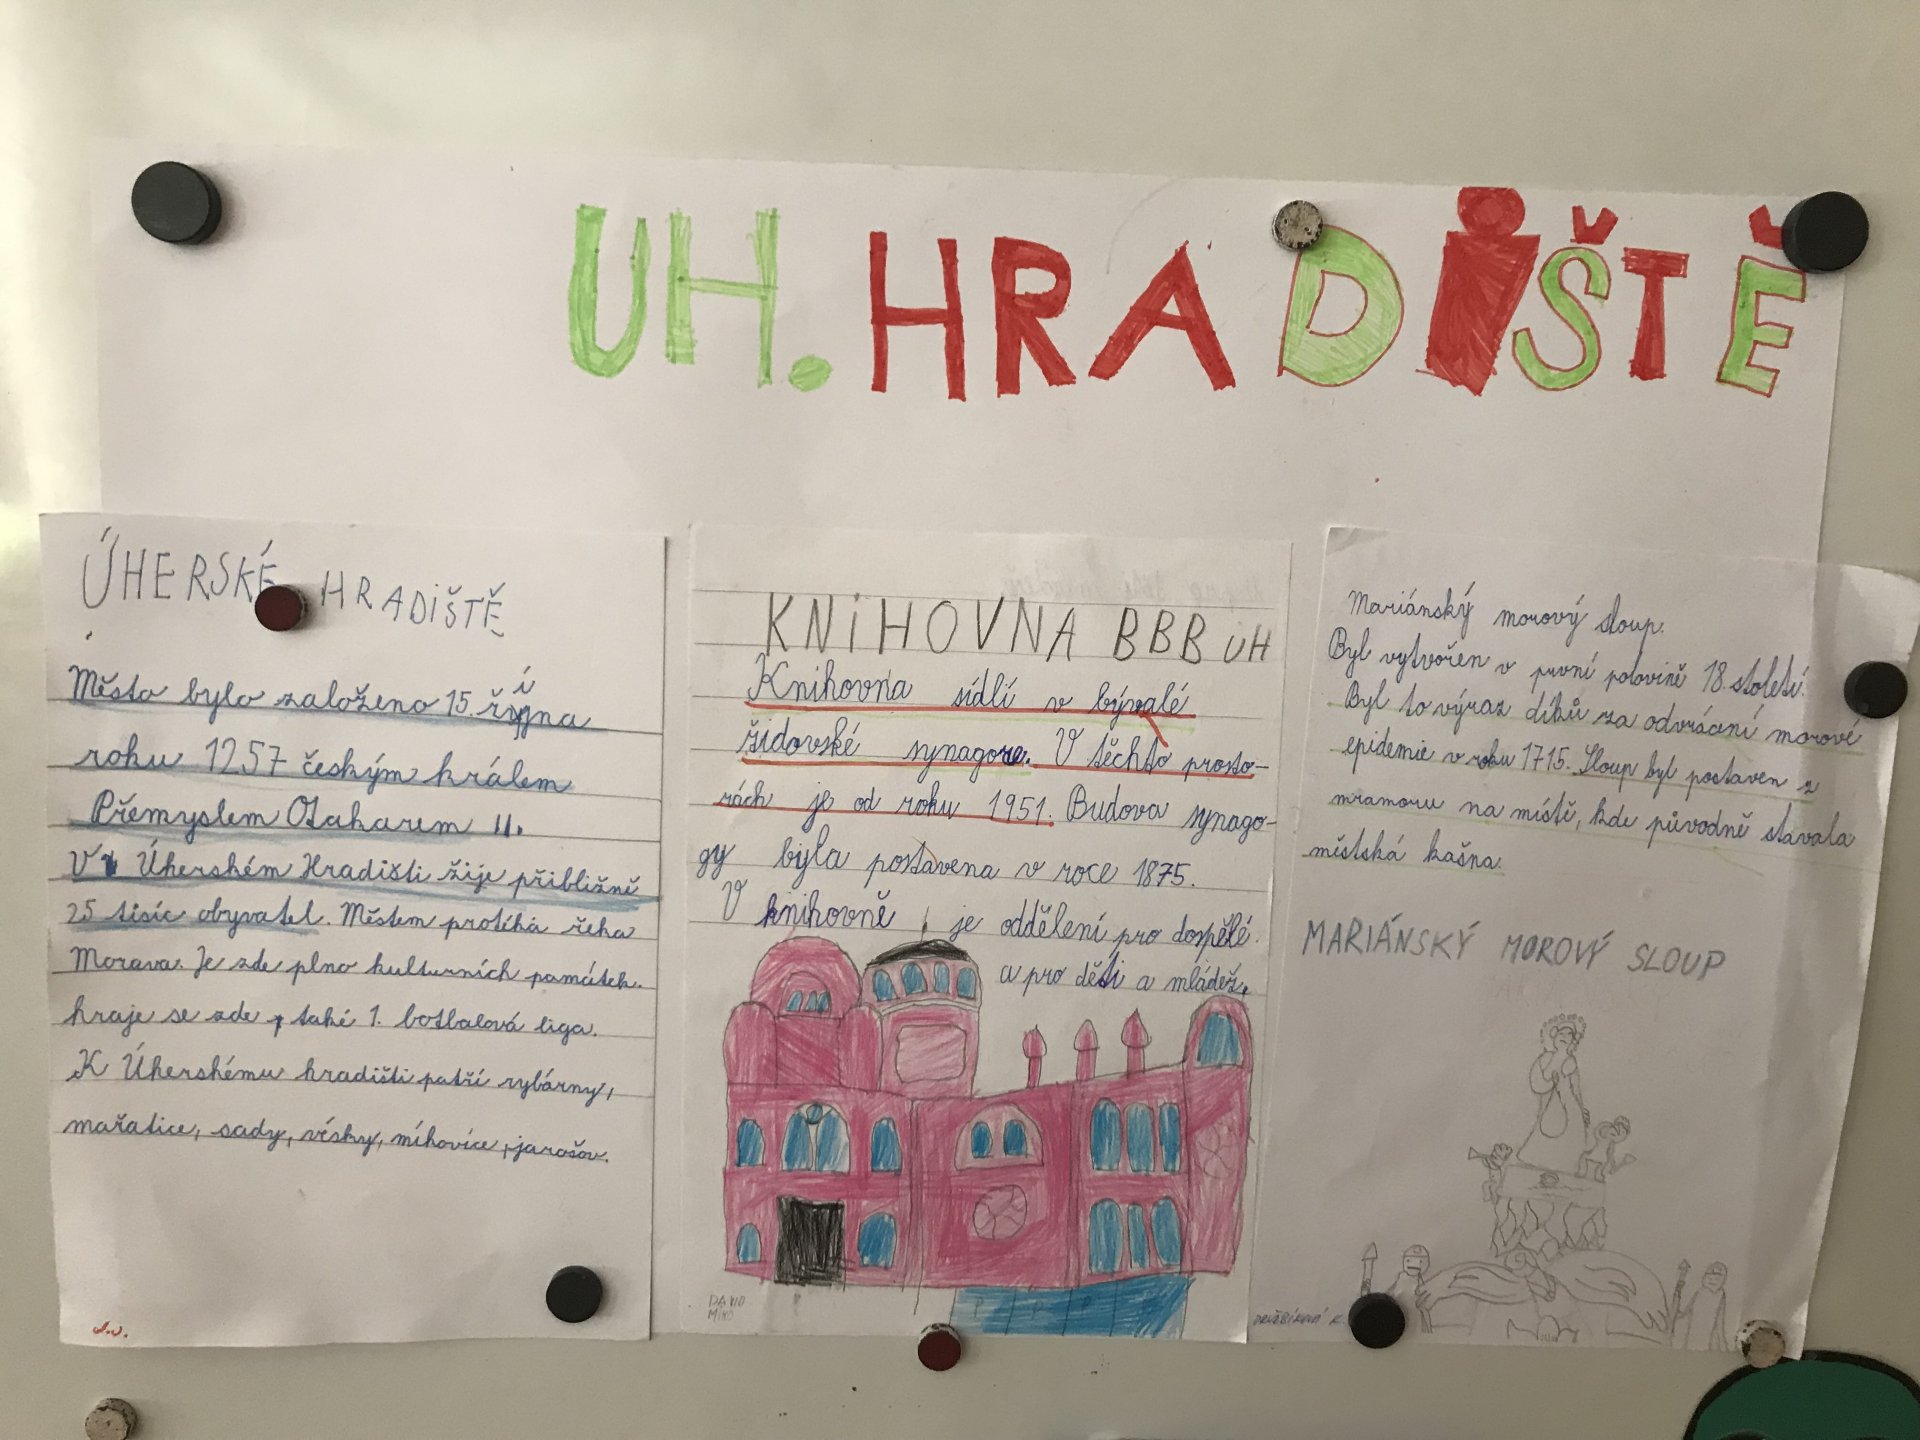 UH. HRADiŠTĚ
ÚHERSKÉ HRADiŠTĚ
Město bylo založeno 15. října
roku 1257 českým králem
Přemyslem Otakarem II.
V Úherském Hradišti žije přibližně
25 tisíc obyvatel. Městem protéká řeka
Morava. Je zde plno kulturních památek.
hraje se zde, také 1. botbalová liga.
K Úherskému hradišti patří rybárny,
mařatice, sady, vésky, míkovice, jarošov.
J.J.
KNiHOVNA BBB UH
Knihovna sídlí v bývalé
židovské synagoze. V těchto prosto-
rách je od roku 1951. Budova synago-
gy byla postavena v roce 1875.
V knihovně je oddělení pro dospělé
a pro děti a mládež.
DAVID
MIKO
Mariánský morový sloup.
Byl vytvořen v první polovině 18. století.
Byl to výraz díků za odvrácení morové
epidemie v roku 1715. Sloup byl postaven z
mramoru na místě, kde původně stávala
městská kašna.
MARIÁNSKÝ MOROVÝ SLOUP